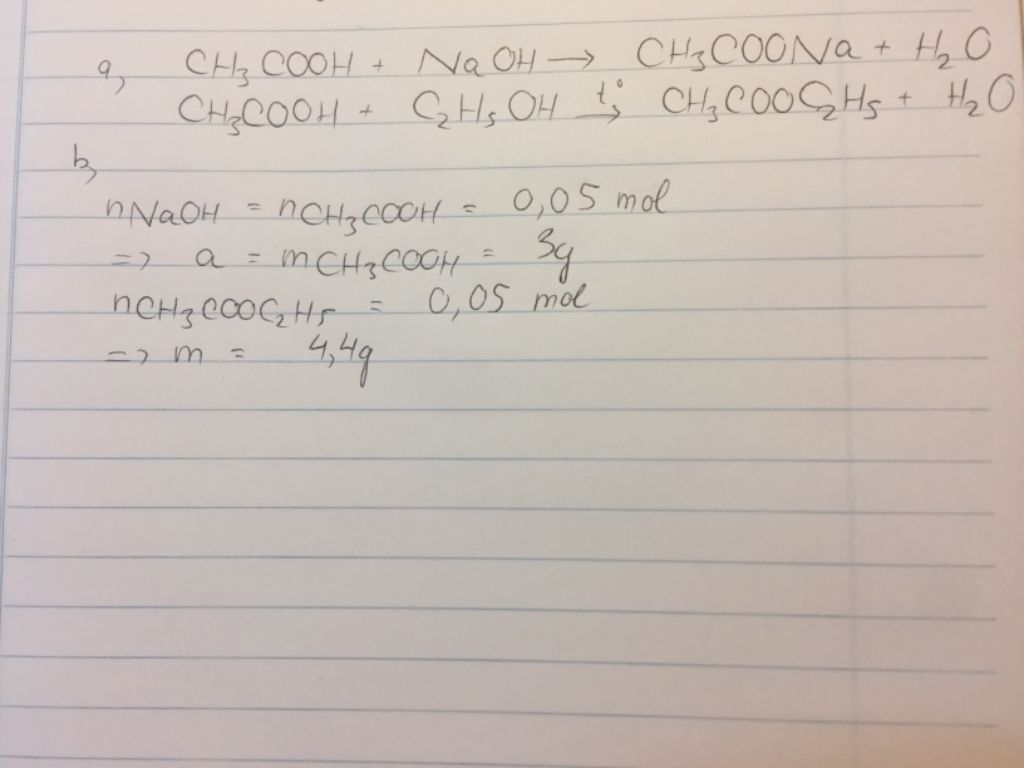 a, CH3COOH + NaOH → CH3COONa + H2O
CH3COOH + C2H5OH t°→ CH3COOC2H5 + H2O
b,
nNaOH = nCH3COOH = 0,05 mol
=> a = mCH3COOH = 3g
nCH3COOC2H5 = 0,05 mol
=> m = 4,4g